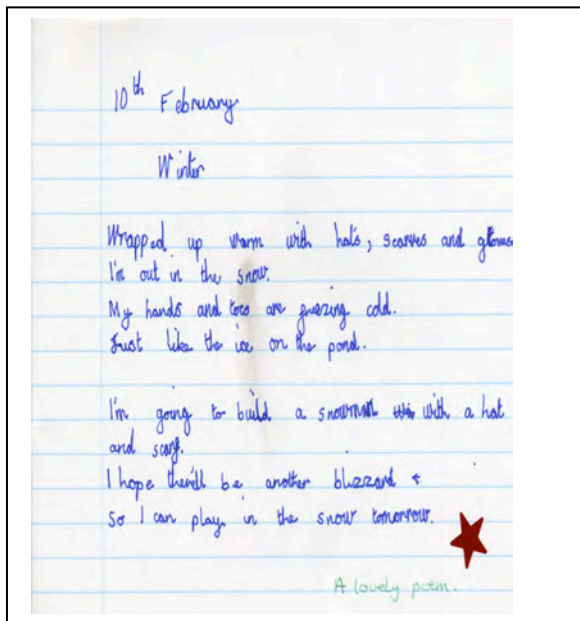 10th February
Winter
Wrapped up warm with hats, scarves and gloves
I'm out in the snow.
My hands and toes are freezing cold.
Just like the ice on the pond.
I'm going to build a snowman with a hat
and scarf.
I hope there'll be another blizzard
So I can play in the snow tomorrow.
A lovely poem.